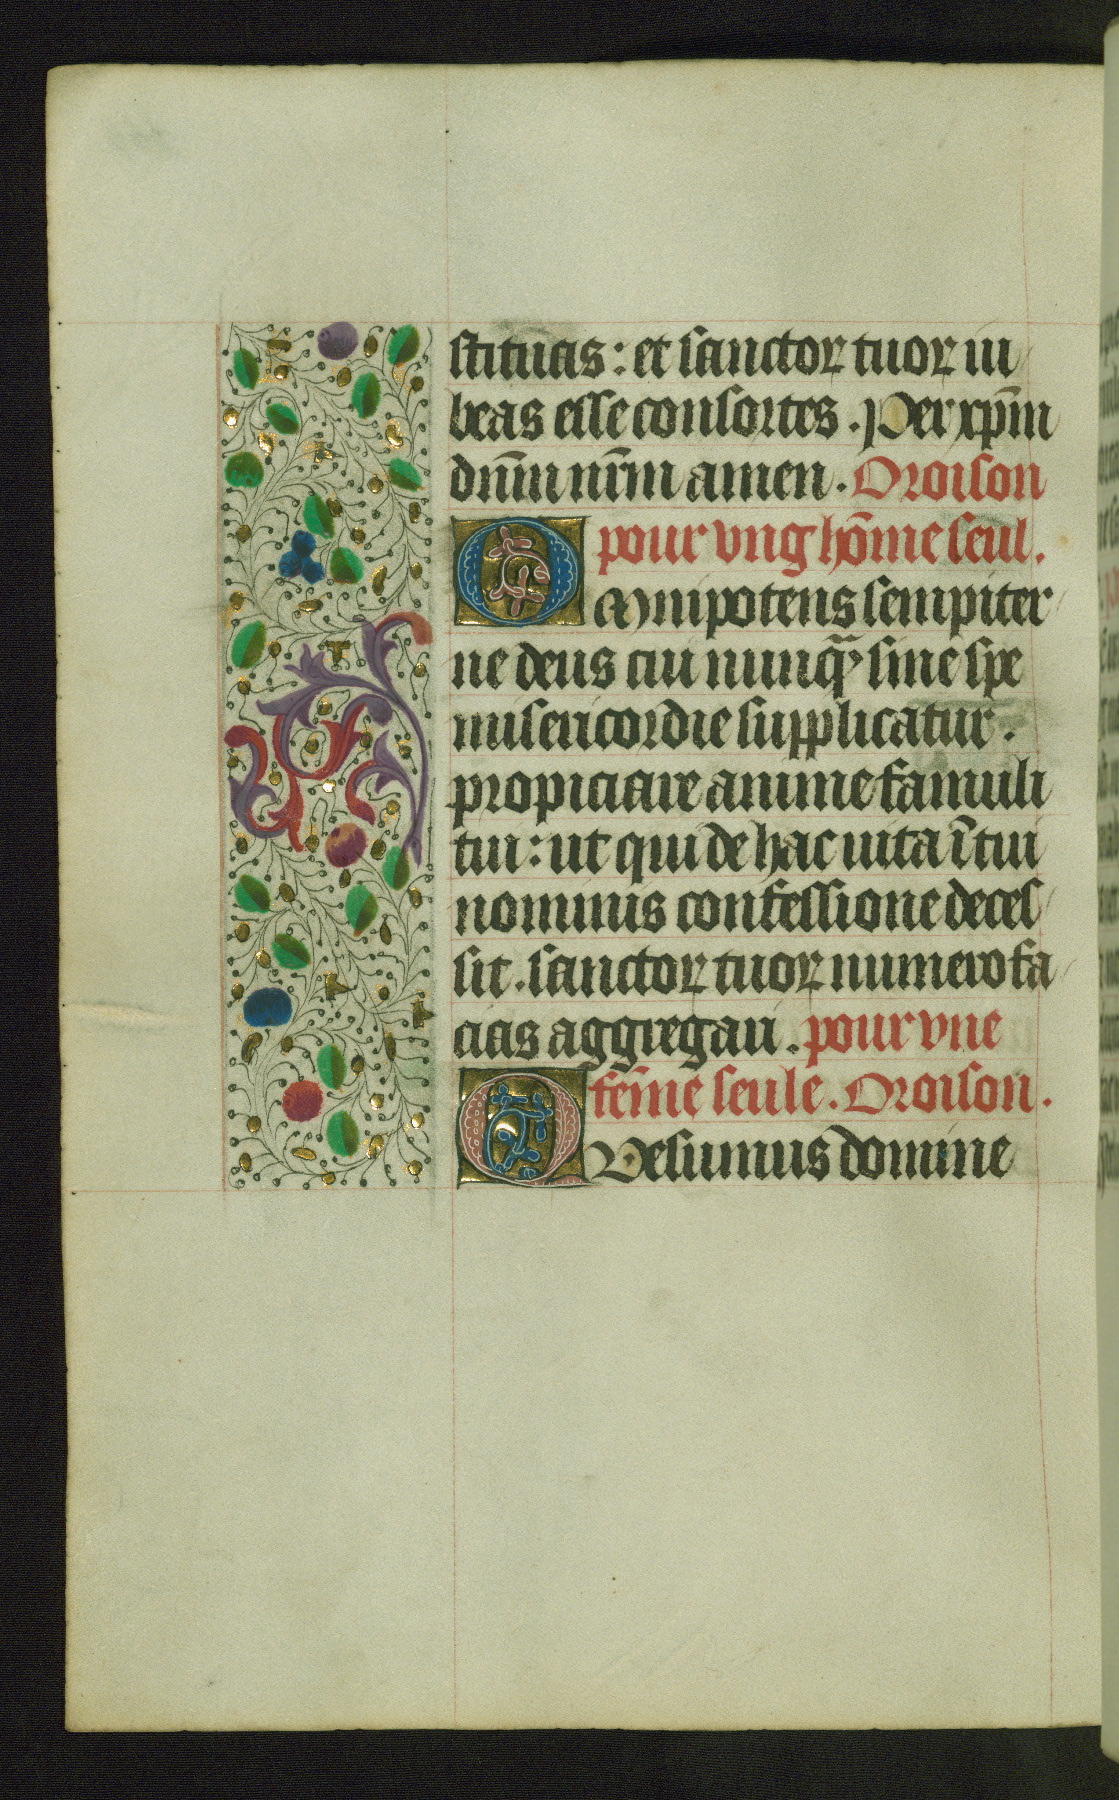 stituas: et sanctoꝝ tuoꝝ iu
beas esse consortes. Per xp̄m
dn̄m nr̄m amen. Oroison
pour vng hōme seul.
Omnipotens sempiter
ne deus cui nunqᷓ sine spe
misericordie supplicatur.
propiciare anime famuli
tui: ut qui de hac uita ī tui
nominis confessione deces
sit. sanctoꝝ tuoꝝ numero fa
cias aggregari. pour vne
fem̄e seule. Oroison.
Quesumus domine